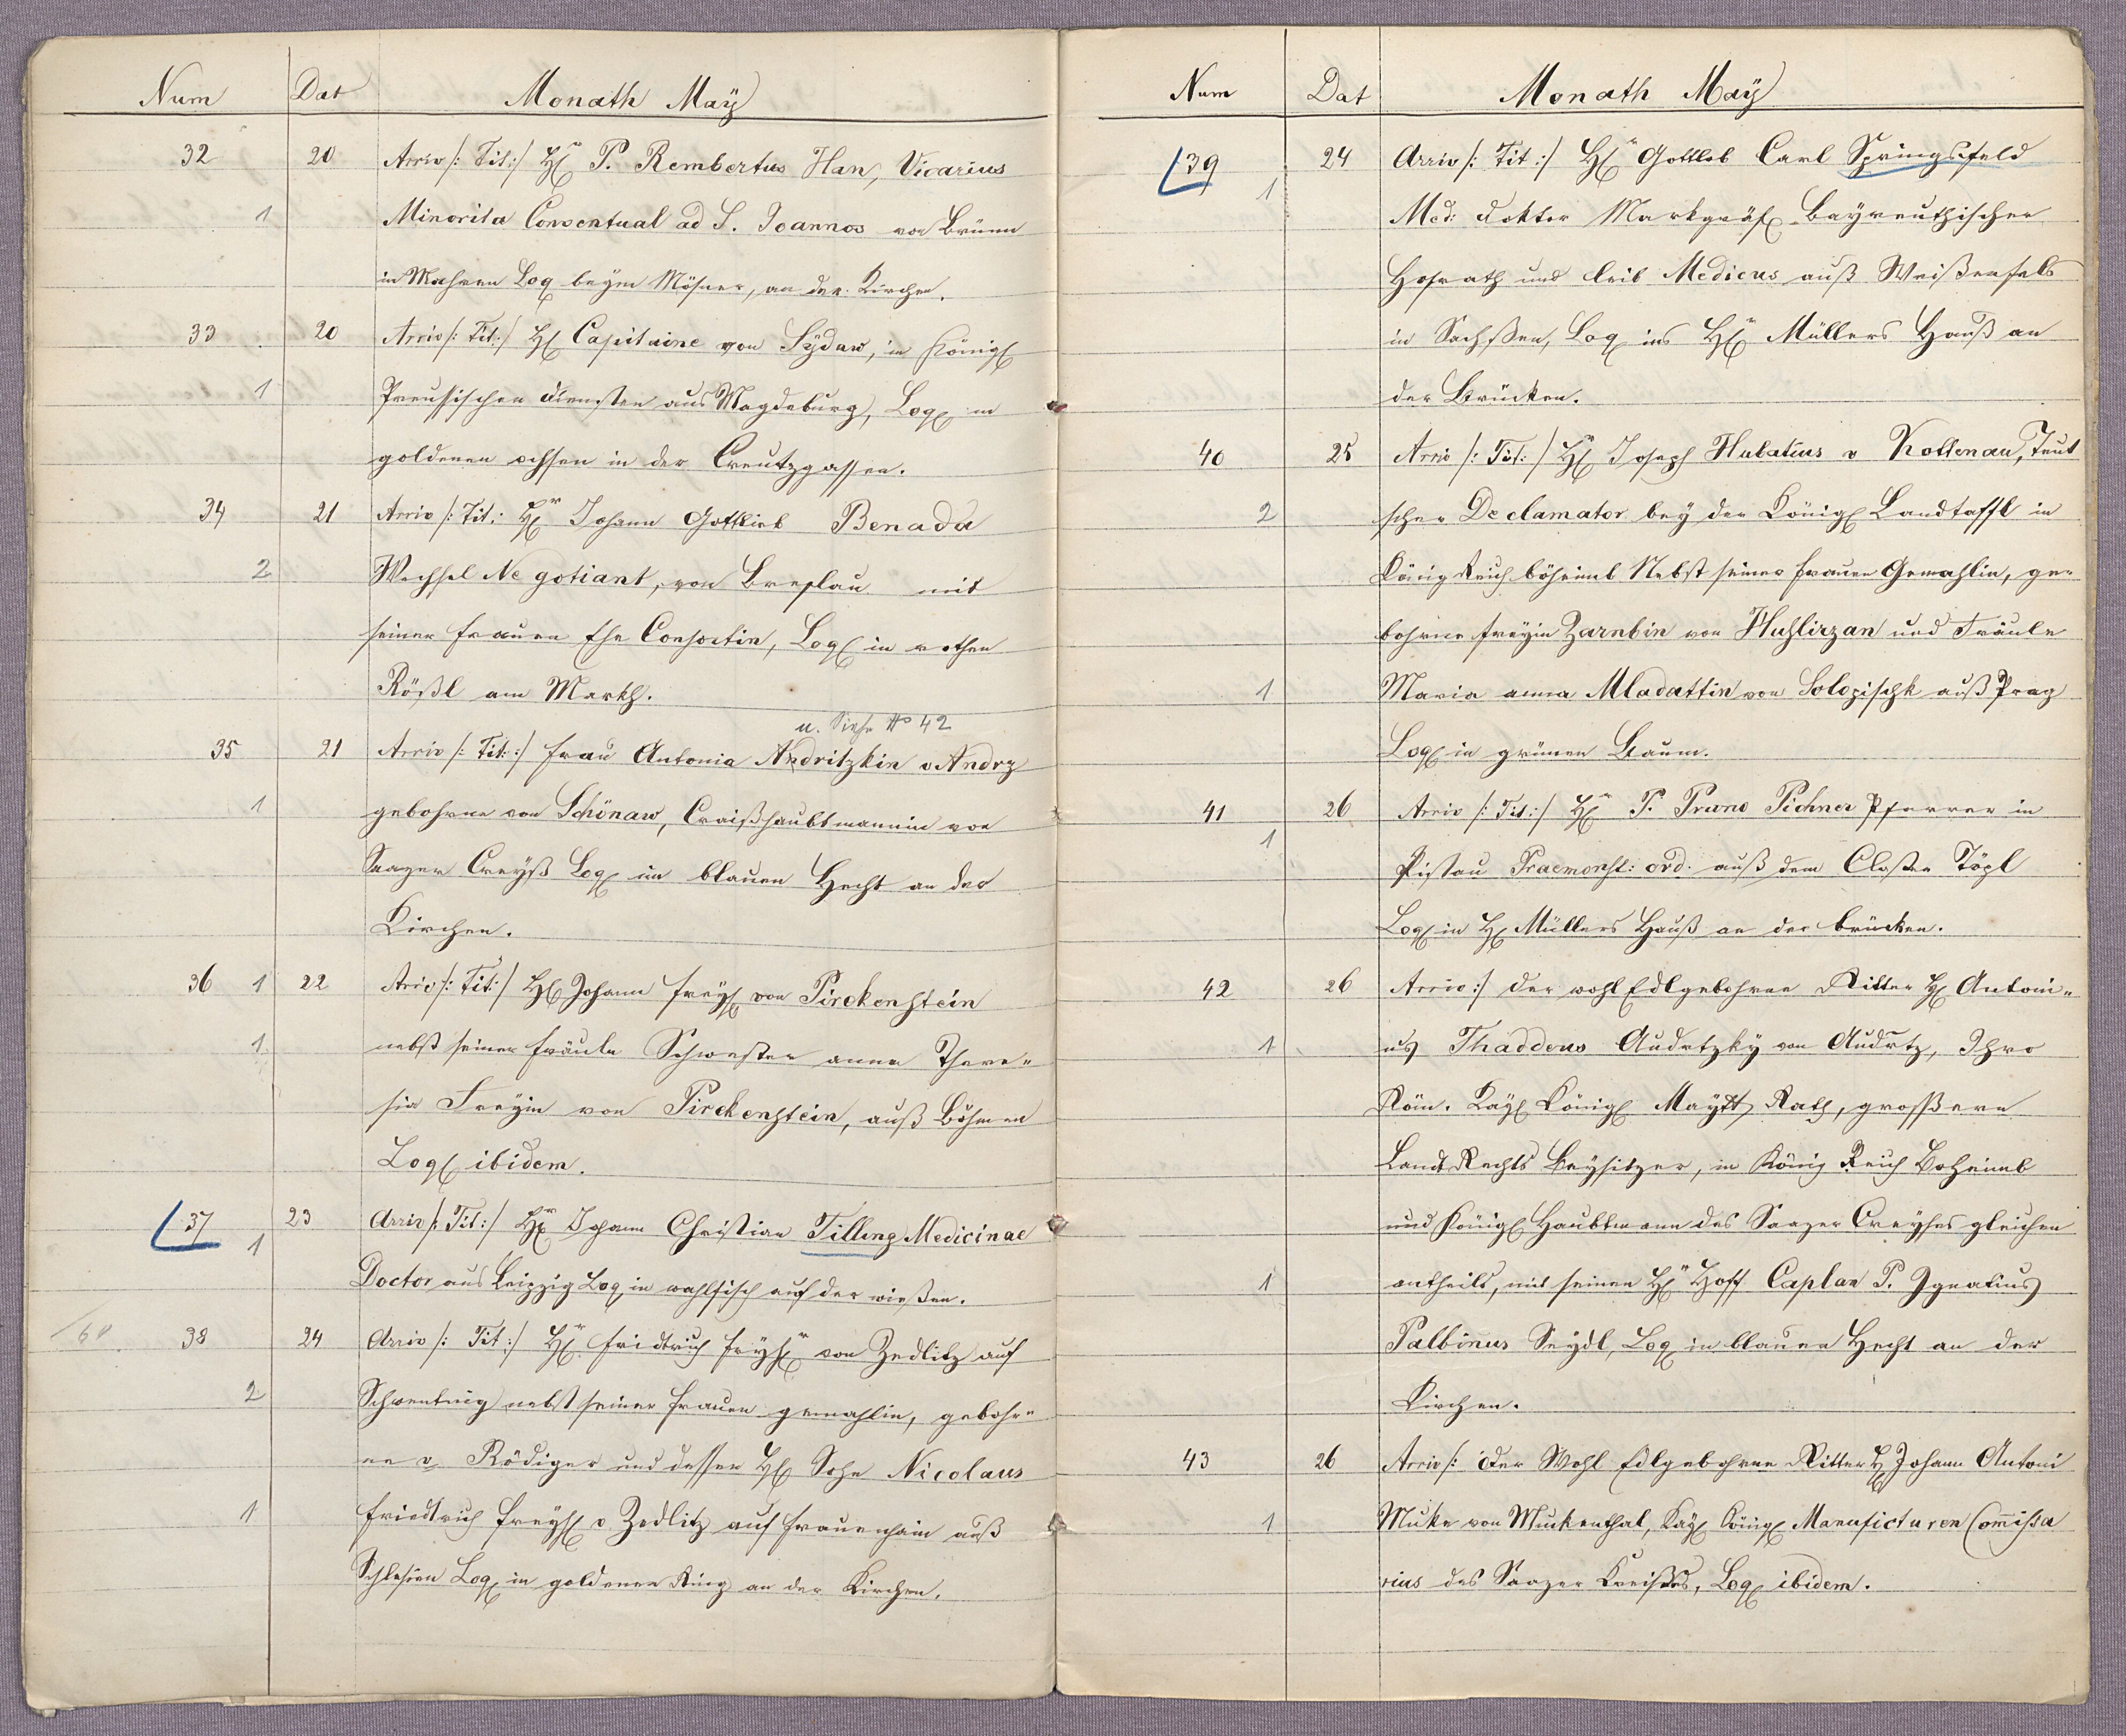 Num Dat Monath Maÿ
32 20 Arriv /: Tit :/ H͠ P. Rembertus Han, Vicarius
1 Minorita Conventual ad S. Joannos von Brünn
in Mahren Log beym Mösner, an der Kirchen.
33 20 Arriv /: Tit :/ H͠ Capitaine von Sÿdaw, in Königl
1 Preussischen diensten aus Magdeburg, Log in
goldenen ochsen in der Creutzgassen.
34 21 Arriv /: Tit : Hr Johann Gottlieb Benada
2 Wechsel Negotiant, von Breslau mit
seiner frauen Ehe Consortin, Log in rothen
Rößl am Markh.
u. Siehe No 42
35 21 Arriv /: Tit :/ frau Antonia Andritzkin v Andrz
1 gebohrne von Schönaw, Craißhaubtmannin von
Saazer Creyß Log im blauen Hecht an der
Kirchen.
36 1 22 Arriv /: Tit :/ H͠ Johann freyh von Pirckenstein
1 nebst seiner fräule Schwester anna There-
sia Freyin von Pirckenstein, auß Böhmen
Log ibidem.
37 1 23 Arriv /: Tit :/ Hr Johann Christian Tilling Medicinae
Doctor aus Leipzig Log in wahlfisch auf der wießen.
60 38 24 Arriv /: Tit :/ Hr fridrich fryhr von Zedlitz auf
2 Schwentnig nebst seiner frauen gemahlin, gebohr-
ne v Rödiger und dessen H͠ Sohn Nicolaus
1 friedrich freyh v Zedlitz auf frauenhain auß
Schlesien Log in goldenen Ring an der Kirchen.
Num Dat Monath Maÿ
39 1 24 Arriv /: Tit :/ Hr Gottlob Carl Springsfeld
Med: doktor Markgräfl Bayreuthischer
Hofrath und leib Medicus auß Weißenfels
in Sachßen, Log ins Hr Müllers Hauß an
der Brücken.
40 25 Arriv /: Tit :/ Hr Joseph Hubatius v Kottenau, Teut
2 scher Declamator bey der Königl Landtaffl in
König Reich böheimb Nebst seiner frauen Gemahlin, ge-
bohrne freyin Zarubin von Huhlirzan und Fräule
1 Maria anna Mladattin von Solopischk auß Prag
Log in grünen Baum.
41 26 Arriv /: Tit :/ Hr P. Pruno Pichner Pfarrer in
1 Pistau Praemonst: ord. auß dem Closter Töpl
Log in H͠ Müllers Hauß an der brücken.
42 26 Arriv :/ der wohl Edlgebohrne Ritter H͠ Antoni-
1 us Thaddeus Audrtzkÿ von Audrtz, Ihro
Röm. Kayl Königl Maytt Rath, grossern
Landt Rechts beysitzer, in König Reich Boheimb
und Königl Haubtmann des Saazer Creyses gleichen
1 antheils, mit seinen Hn Hoff Caplan P. Ignatius
Palbinus Seydl, Log in blauen Hecht an der
Kirchen.
43 26 Arriv /: der Wohl Edlgebohrne Ritter H͠ Johann Antoni
1 Muke von Muckenthal, Kayl Königl Manufacturen Com̄issa
rius des Saazer Kreißes, Log ibidem.